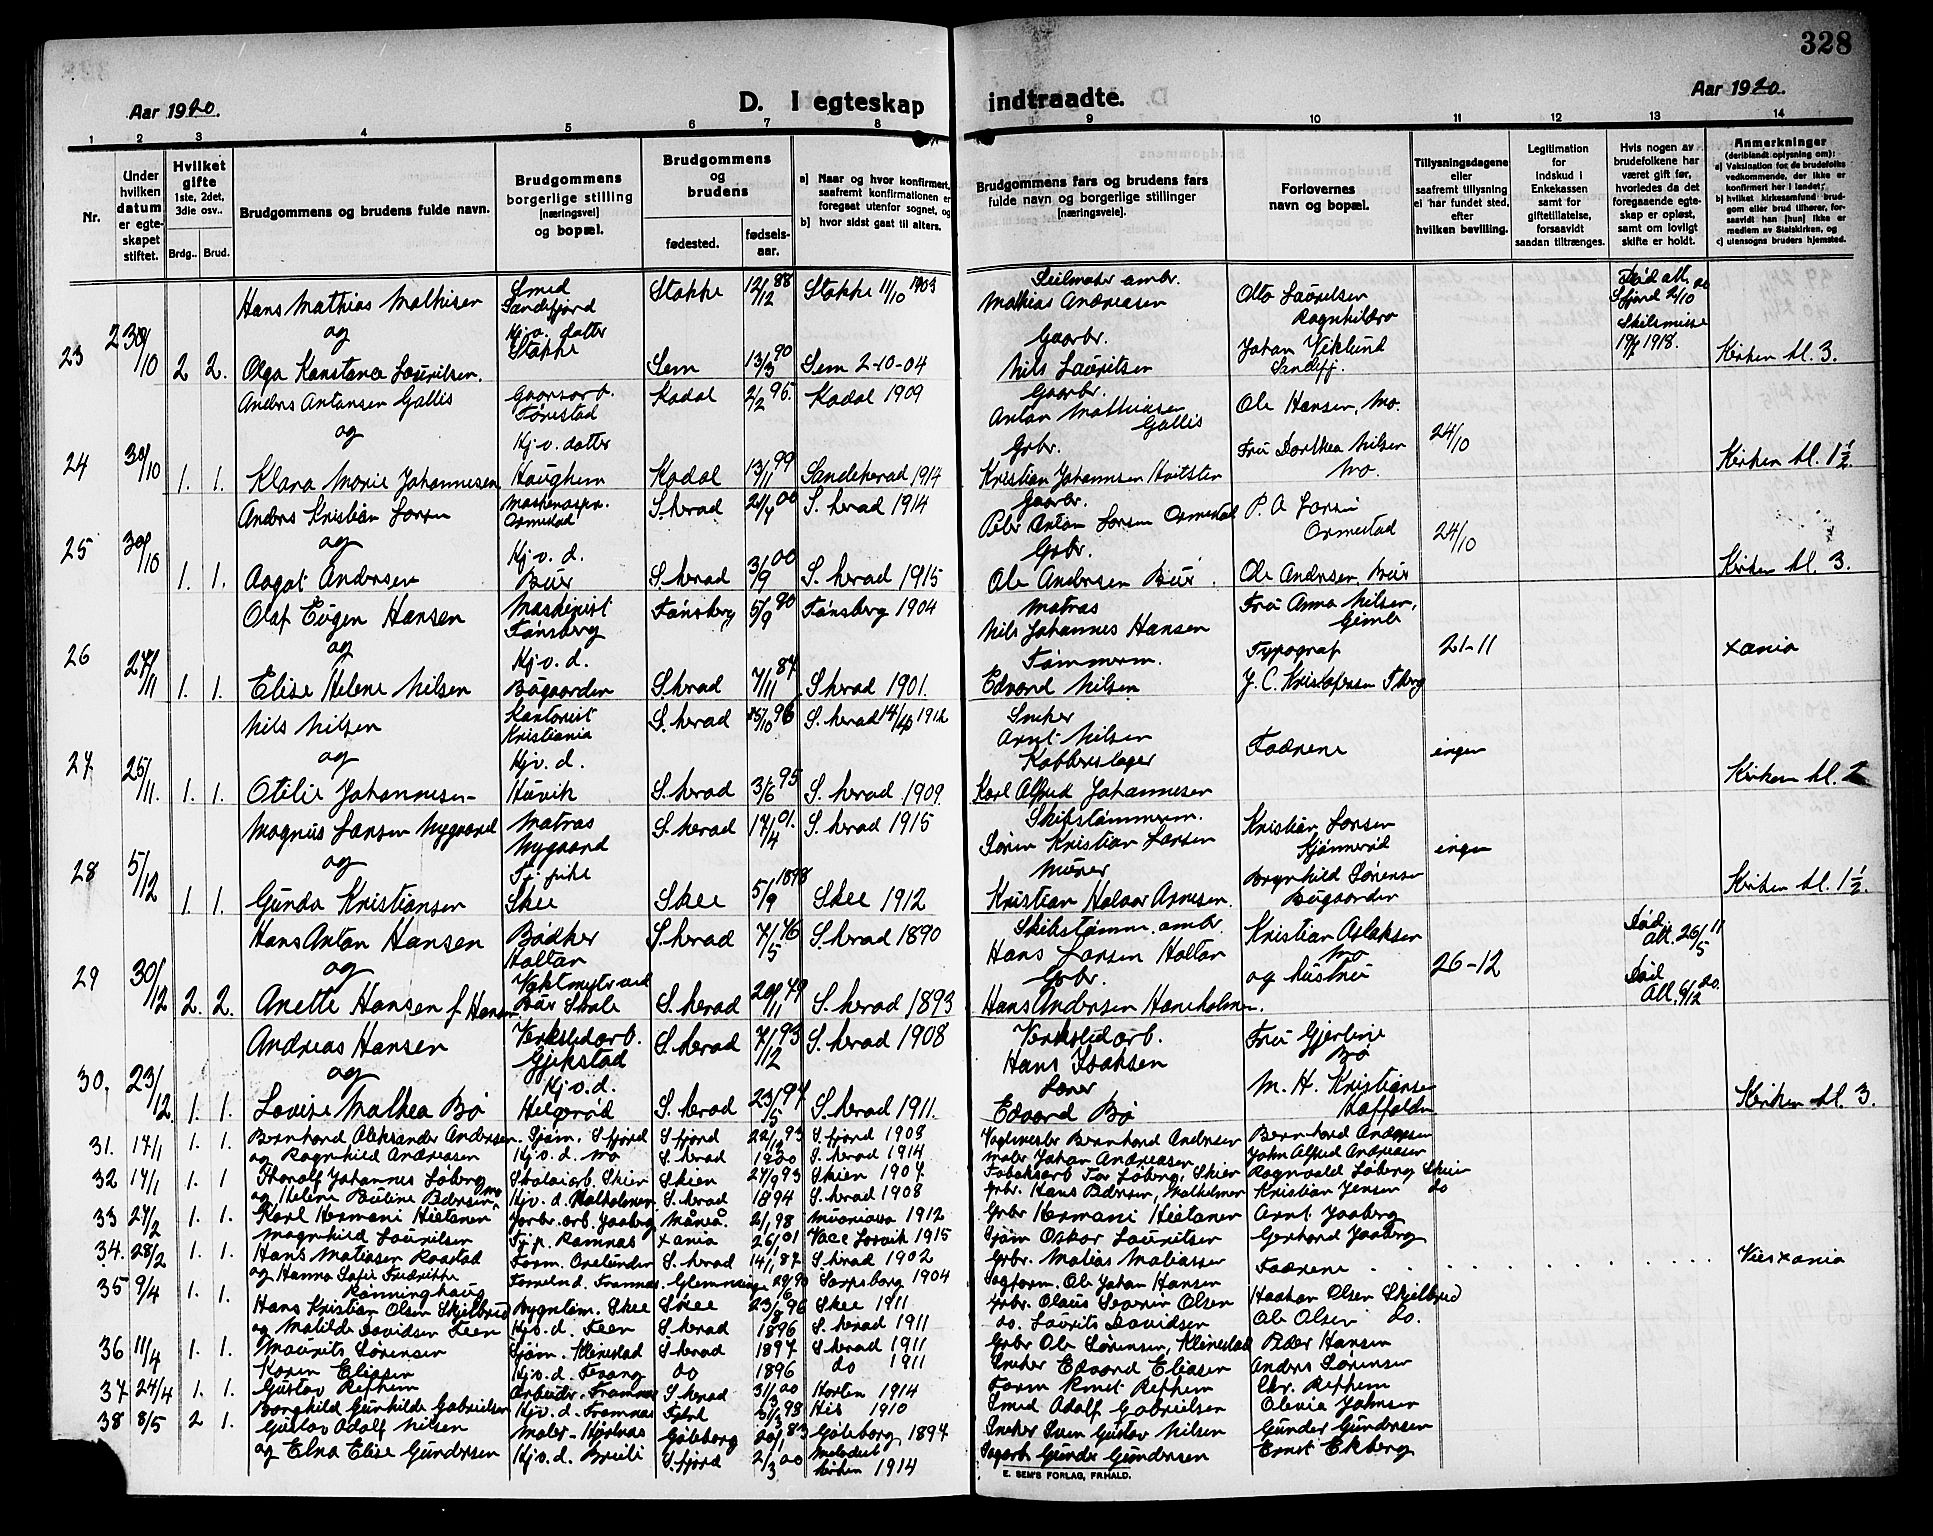 328
Aar 1920.
D. I egteskap indtraadte.
Aar 1920.
1 2 3 4 5 6 7 8 9 10 11 12 13 14
Nr.
Under hvilken datum er egteskapet stiftet.
Hvilket gifte 1ste, 2det, 3die osv..
Brdg.. Brud.
Brudgommens og brudens fulde navn.
Brudgommens borgerlige stilling [næringsvei] og bopæl.
Brudgommens og brudens
fødested. fødsels-aar.
a) Naar og hvor konfirmert, saafremt konfirmationen er foregaat utenfor sognet, og
b) hvor sidst gaat til alters.
Brudgommens fars og brudens fars fulde navn og borgerlige stillinger [næringsveie].
Forlovernes navn og bopæl.
Tillysningsdagene eller saafremt tillysning ei har fundet sted, efter hvilken bevilling.
Legitimation for indskud i Enkekassen samt for giftetillatelse, forsaavidt saadan tiltrænges.
Hvis nogen av brudefolkene har været gift før, hvorledes da det foregaaende egteskap er opløst, samt om lovligt skifte er holdt.
Anmerkninger (deriblandt oplysning om): a) Vaksination for de brudefolks vedkommende, der ikke er konfirmert her i landet; b) hvilket kirkesamfund brudgom eller brud tilhører, forsaavidt han [hun] ikke er medlem av Statskirken, og c) utensogns bruders hjemsted.
Hans Mathias Mathisen Smed Sandefjord Stokke 12/12 88 Stokke 11/10 1903 Seilmaker ambr. Mathias Andreasen Otto Lauritsen Ragnhildrø Død att. Sfjord 2/10
23 30/10 2 2. og Olga Konstance Lauritsen. Hj.v. datter Stokke Sem 13/3 90 Sem 2-10-04 Gaarbr. Nils Lauritsen Johan Viklund Sandefj. Skilsmisse 1918. Kirken kl. 3.
Anders Antonsen Gallis Gaarsarb. Kodal 2/2 95. Kodal 1909 Gaarbr. Anton Mathiasen Gallis Ole Hansen, Mo.
24 30/10 1. 1. og Klara Marie Johannesen Hj.v. datter Haughem Kodal 13/11 99 Sandeherad 1914 Grbr. Kristian Johannesen Hvitsten Fru Dorthea Nilsen Mo. 24/10 Kirken kl. 1½.
Anders Kristian Larsen Ormestad S.herad 00 S. herad 1914 Gaarbr. Peder Anton Larsen Ormestad P. A Larsen Ormestad
25 30/10 1. 1. og Aagot Andersen Hj.v.d. Buer S. herad 3/9 00 S. herad 1915 Grbr. Ole Andersen Buer. Ole Andersen, Buer 24/10 Kirken kl. 3.
Olaf Eugen Hansen Maskinist Tønsberg Tønsberg 5/9 90 Tønsberg 1904 Matros Nils Johannes Hansen Fru Anna Nilsen, Gimle
26 27/11 1. 1. og Elise Helene Nilsen Hj.v.d. Bugaarden S herad 7/11 87 S herad 1901. Tømmerm. Edvard Nilsen Typograf J. C. Kristofersen Tberg 21-11 xania
Nils Nilsen Kontorist Kristiania S. herad 15/10 96 S. herad 1912 Sneker Arnt Nilsen
27. 25/11. 1. 1. og Otilie Johannesen Hj.v. d. Huvik S. herad 3/6 95 S. herad 1909. Kobberslager Karl Alfred Johannesen Fædrene ingen Kirken kl. 2
Magnus Larsen Nygaard Matros Nygaard S. herad 17/4 01. S. herad 1915 Skibstømmerm. Søren Kristian Larsen Kristian Larsen Kjønnerød
28 5/12 1. 1. og Gunda Kristiansen Tj.pike Skee Skee 5/9 1898 Skee 1912 Murer Kristian Halvor Arnesen Brynhild Sørensen Bugaarden ingen Kirken kl. 1½.
Hans Anton Hansen Bødker Holtan S. herad 7/5 76 S. herad 1890 Skibstømm. ambr. Hans Larsen Holtan Kristian Aslaksen Mo Død att. 26/5 11
29 30/12 2. 2. og Anette Hansen f. Hansen Bur Skole S. herad 20/11 79 S. herad 1893 Grbr. Hans Andersen Haneholmen. og hustru 26-12 Død Att. 6/12 20.
Andreas Hansen Verkstedarb. Gjekstad S. herad 7/12 93 S. herad 1908 Verkstedarb. Hans Isaksen Fru Gjertine Bø
30. 23/12 1. 1. og Lovise Mathea Bø Hj.v.d. Helgerød S. herad 23/5 97 S. herad 1911. Lærer Edvard Bø M. H. Kristiansen Kirken kl. 3.
31. 17/1 1. 1. Bernhard Aleksander Andersen. Sjøm. Sfjord S fjord 22/10 93 S. fjord 1908 Bernhard Andersen Bernhard Andersen
og Ragnhild Andreasen Hj.v.d. Mo S. herad 1900 S. herad 1914 Maler Johan Andreasen John Alfred Andreasen
32 17/1 1. 1 Thoralf Johannes Løberg Skotøiarb. Skien Skien 27/9 93 Skien 1907 Tobaksarb Tor Løberg, Skien Ragnvald Løberg Skien
og Helene Butine Pedersen Hj.v.d. Holholmen S. herad 1894 S. herad 1908 Grbr. Hans Pedersen, Kristian Jensen do
33 27/2 1. 1. Karl Hermani Hietanen Jorbr. arb. Jaaberg 2/1 98 1912 Grbr Hermani Hietanen Arnt Jaaberg
Magnhild Lauritsen Tj.p. Ramnæs xania 26/1 01 1915 Sjøm Oskar Lauritsen Gerhard Jaaberg
34. 28/2 1. 1. Hans Matiasen Raastad Form. Ørelunden S. herad 14/1 87 S. herad 1902 Grbr. Matias Matiassen Fædrene Viet xania
og Hanna Sofie Fredrikke Rønninghaug Framnæs Glemminge Sarpsborg 1904 Sagform. Ole Johan Hansen
35 9/4 1. 1. Hans Kristian Olsen Skjelbred Bygntøm. Skee Skee 23/8 96 Skee 1911. Grbr. Olaus Severin Olsen Haakon Olsen Skjelbred
og Matilde Davidsen Feen Hj.v.d. Feen S. herad 1896 S. herad 1911 do. Laurits Davidsen Ole Olsen do.
36 11/4 1. 1. Maurits Sørensen Sjøm. Klinestad S herad 1897 S herad 1911 Grbr Ole Sørensen, Klinestad Peder Hansen
Karen Eliasen Hj.v.d. Fevang do 1896 do 1911 Sneker Edvard Eliasen Anders Sørensen
37 24/4 1. 1. Gustav Refhem Arbeider. Framnæs S herad 31/3 00 Horten 1914 Form Knut Refhem Chr. Refhem
Borghild Gunhilde Gabrielsen Hj.v.d. Framnæs 98 His 1910 Smed Adolf Gabrielsen Olevia Johnsen
38 8/5 2 1. Gustav Adolf Nilsen Maler - Hjertnæs Gøteborg 20/1 83 Gøteborg 1897 Snekker Sven Gustav Nilsen Gunder Gundersen
og Elna Elise Gundersen Hj.v.d. Breili S. fjord 2/3 00 Metodist kirken 1914 Sagarb. Gunder Gundersen Ernst Ekberg
E. SEM'S FORLAG, FR.HALD.